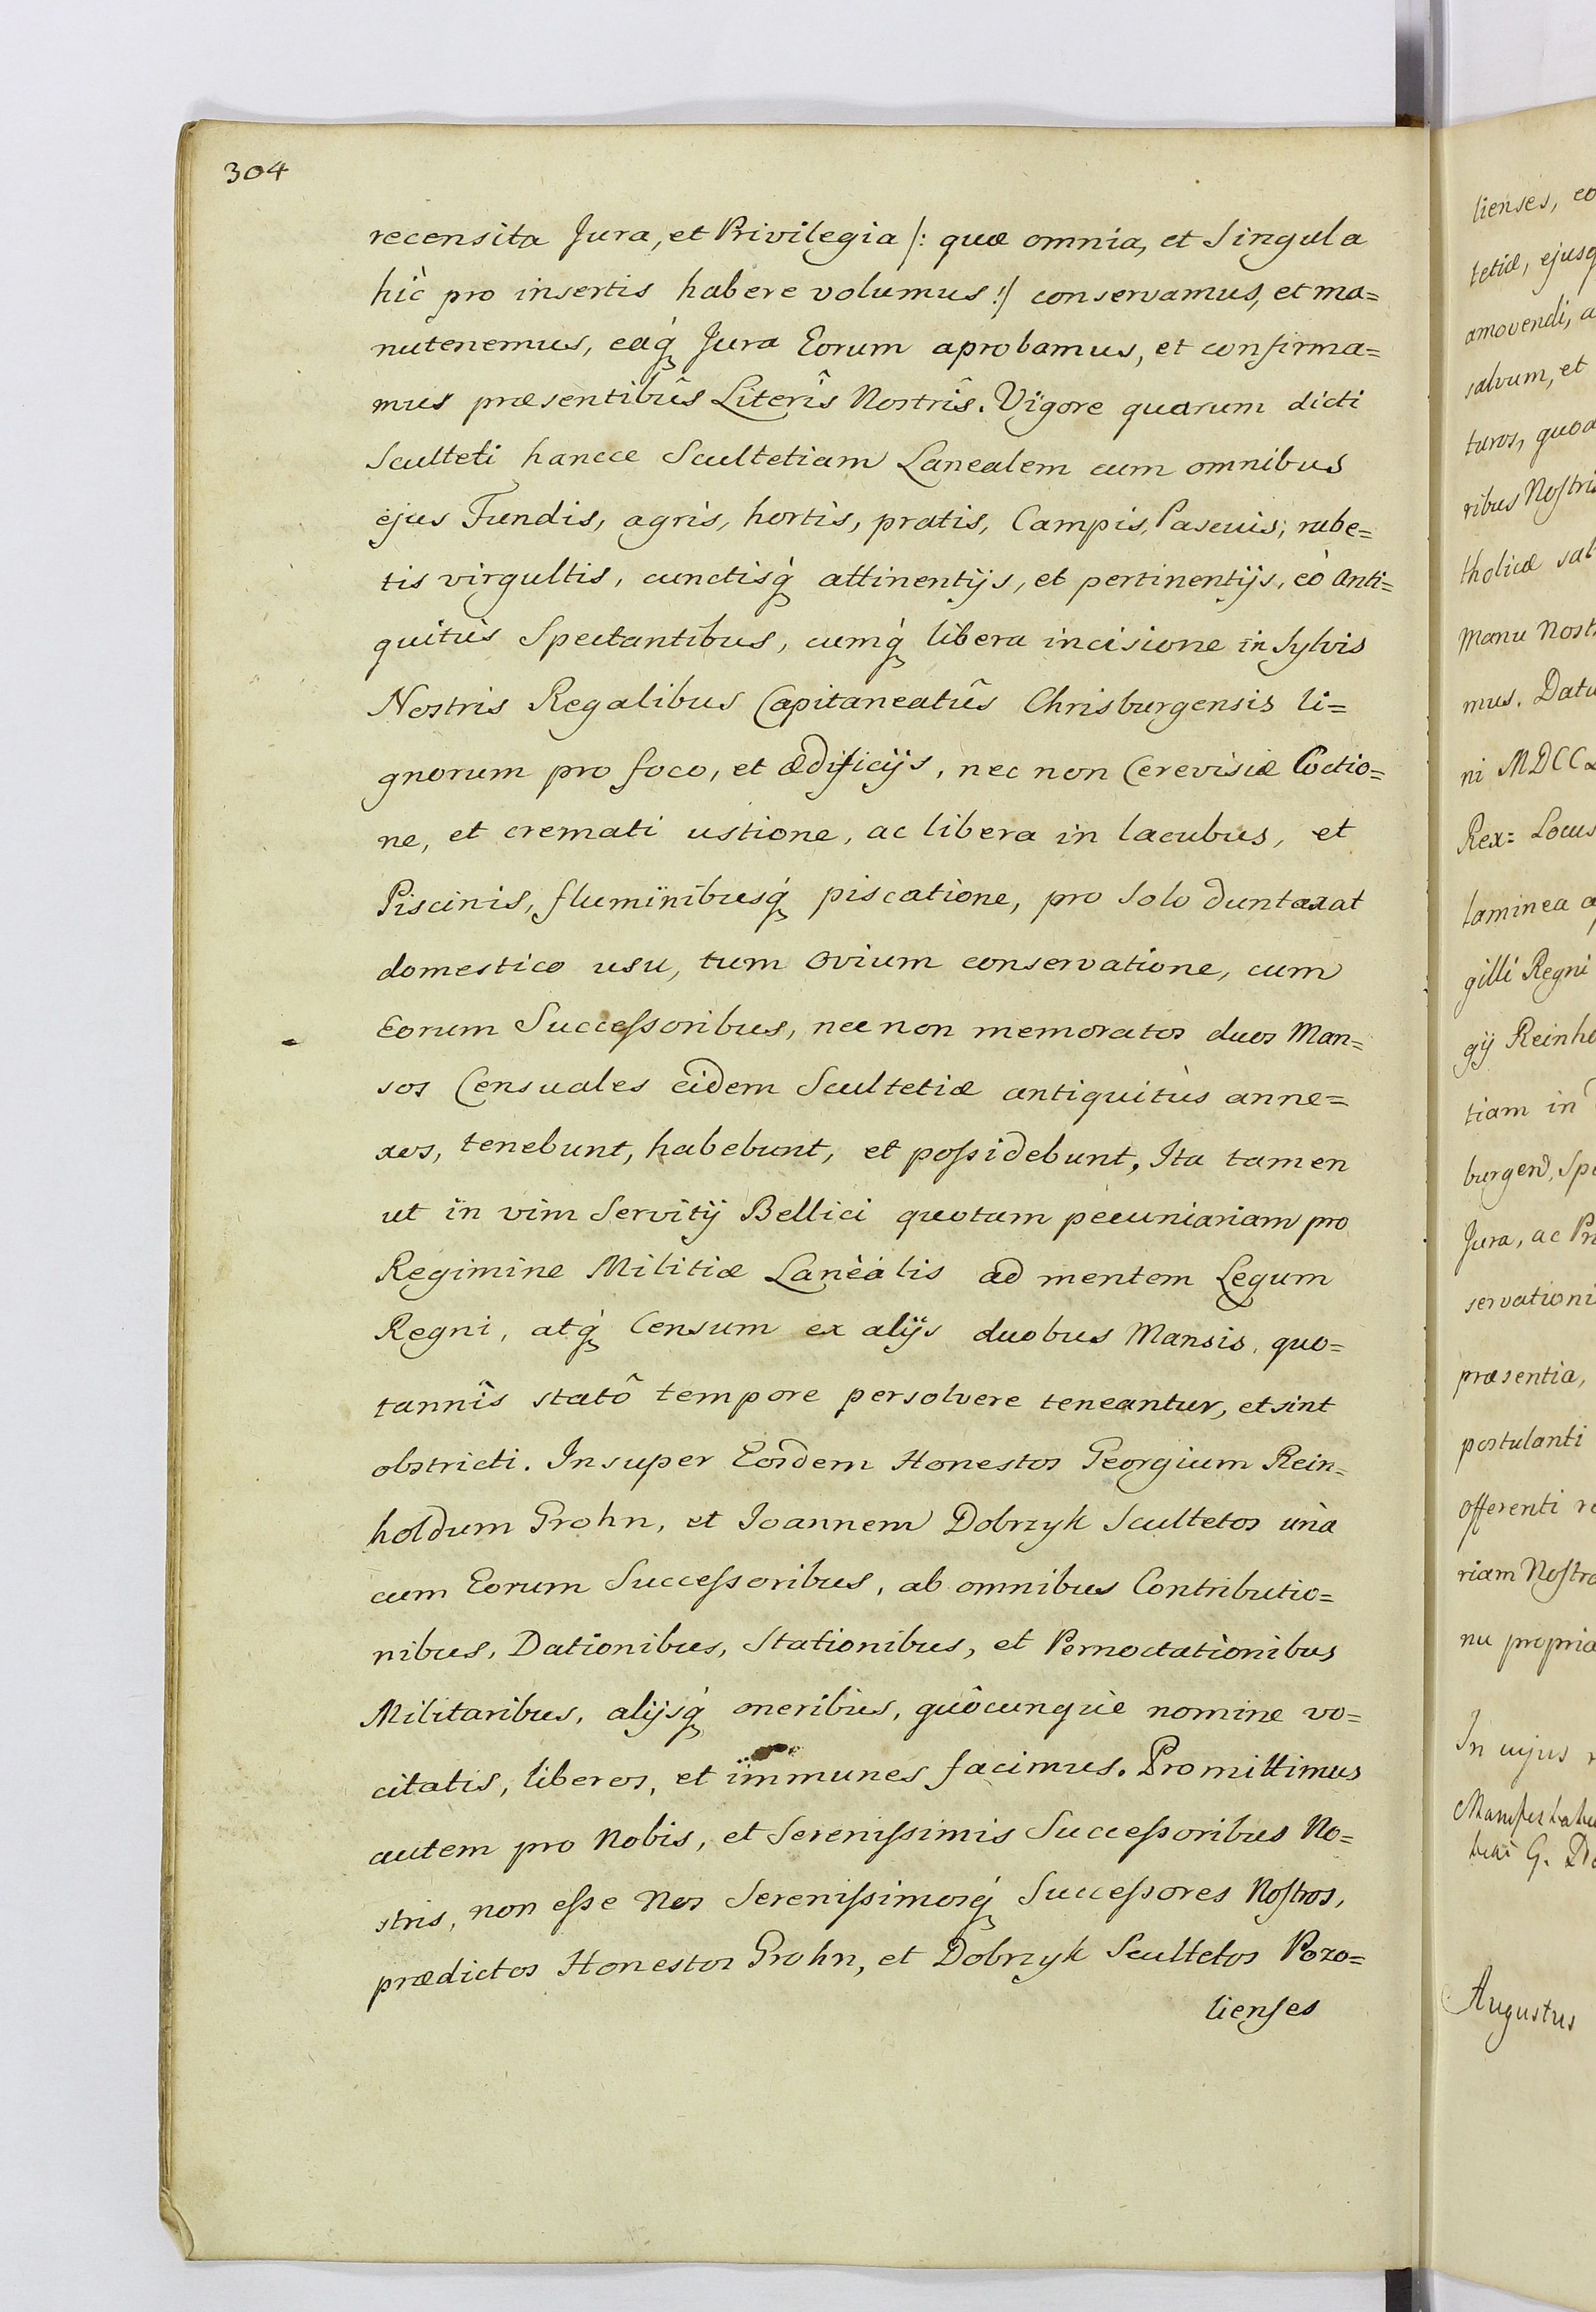 304
recensita Jura, et Privilegia /: quæ omnia, et Singula
hìc pro insertis habere volumus :/ conservamus, et ma=
nutenemus, eaq́ Jura Eorum aprobamus, et confirma=
mus præsentibûs Literîs Nostrîs. Vigore quarum dicti
Sculteti hancce Scultetiam Lanealem cum omnibus
ejus Fundis, agris, hortis, pratis, Campis, Pascuis, rube=
tis virgultis, cunctisq́ attinentijs, et pertinentijs, eò Anti=
quitùs Spectantibus, cumq́ libera incisione in Sylvis
Nostris Regalibus Capitaneatûs Chrisburgensis li=
gnorum pro foco, et ædificijs, nec non Cerevisiæ Coctio=
ne, et cremati ustione, ac libera in lacubus, et
Piscinis, fluminibusq́ piscatione, pro Solo duntaxat
domestico usu, tum Ovium conservatione, cum
Eorum Succeſsoribus, nec non memoratos duos Man=
sos Censuales eidem Scultetiæ antiquitùs anne=
xos, tenebunt, habebunt, et poſsidebunt, Ita tamen
ut in vim Servitij Bellici quotam pecuniariam pro
Regimine Militiæ Lanealis ad mentem Legum
Regni, atq́ Censum ex alijs duobus Mansis, quo=
tannîs statô tempore persolvere teneantur, et sint
obstricti. Insuper Eosdem Honestos Georgium Rein=
holdum Grohn, et Joannem Dobrzyk Scultetos unà
cum Eorum Succeſsoribus, ab omnibus Contributio=
nibus, Dationibus, Stationibus, et Pernoctationibus
Militaribus, alijsq́ oneribus, quôcunque nomine vo=
citatis, liberos, et immunes facimus. Promittimus
autem pro Nobis, et Sereniſsimis Succeſsoribus No=
stris, non eſse Nos Sereniſsimosq́ Succeſsores Noſtros,
prædictos Honestos Grohn, et Dobrzyk Scultetos Pozo=
lienſes
lienses, eo
tetiæ, ejusq
amovendi, a
salvum, et
turos, quoa
ribus Noſtris
tholicæ sal
manu Nost
mus. Datu
ni MDCC
Rex= Locus
laminea
gilli Regni
gij Reinho
tiam in
burgen, Spe
Jura, ac Pri
servationi
præsentia,
postulanti
offerenti re
riam Noſtra
nu propria
In cujus r
G. Do
Augustus